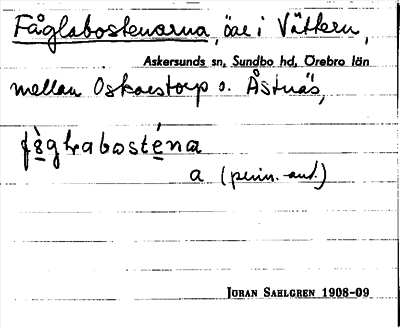 Fåglabostenarna, öar i Vättern,
Askersunds sn, Sundbo hd, Örebro län
mellan Oskarstorp o. Åstnäs,
fåglabosténa
a (pinn.-ant.)
JÖRAN SAHLGREN 1908-09